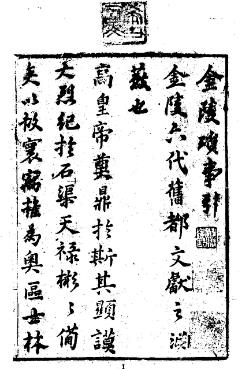 金陵瑣事引
金陵六代舊都文獻之淵
藪也
高皇帝奠鼎於斯其顯謨
大烈紀於石渠天祿彬〻備
矣以故寰寓推為奧區士林
1